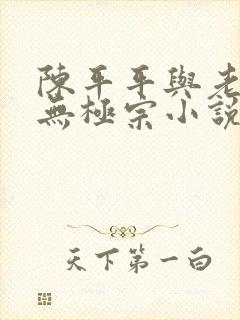 陳平平與老
無極宗小說
天下第一白